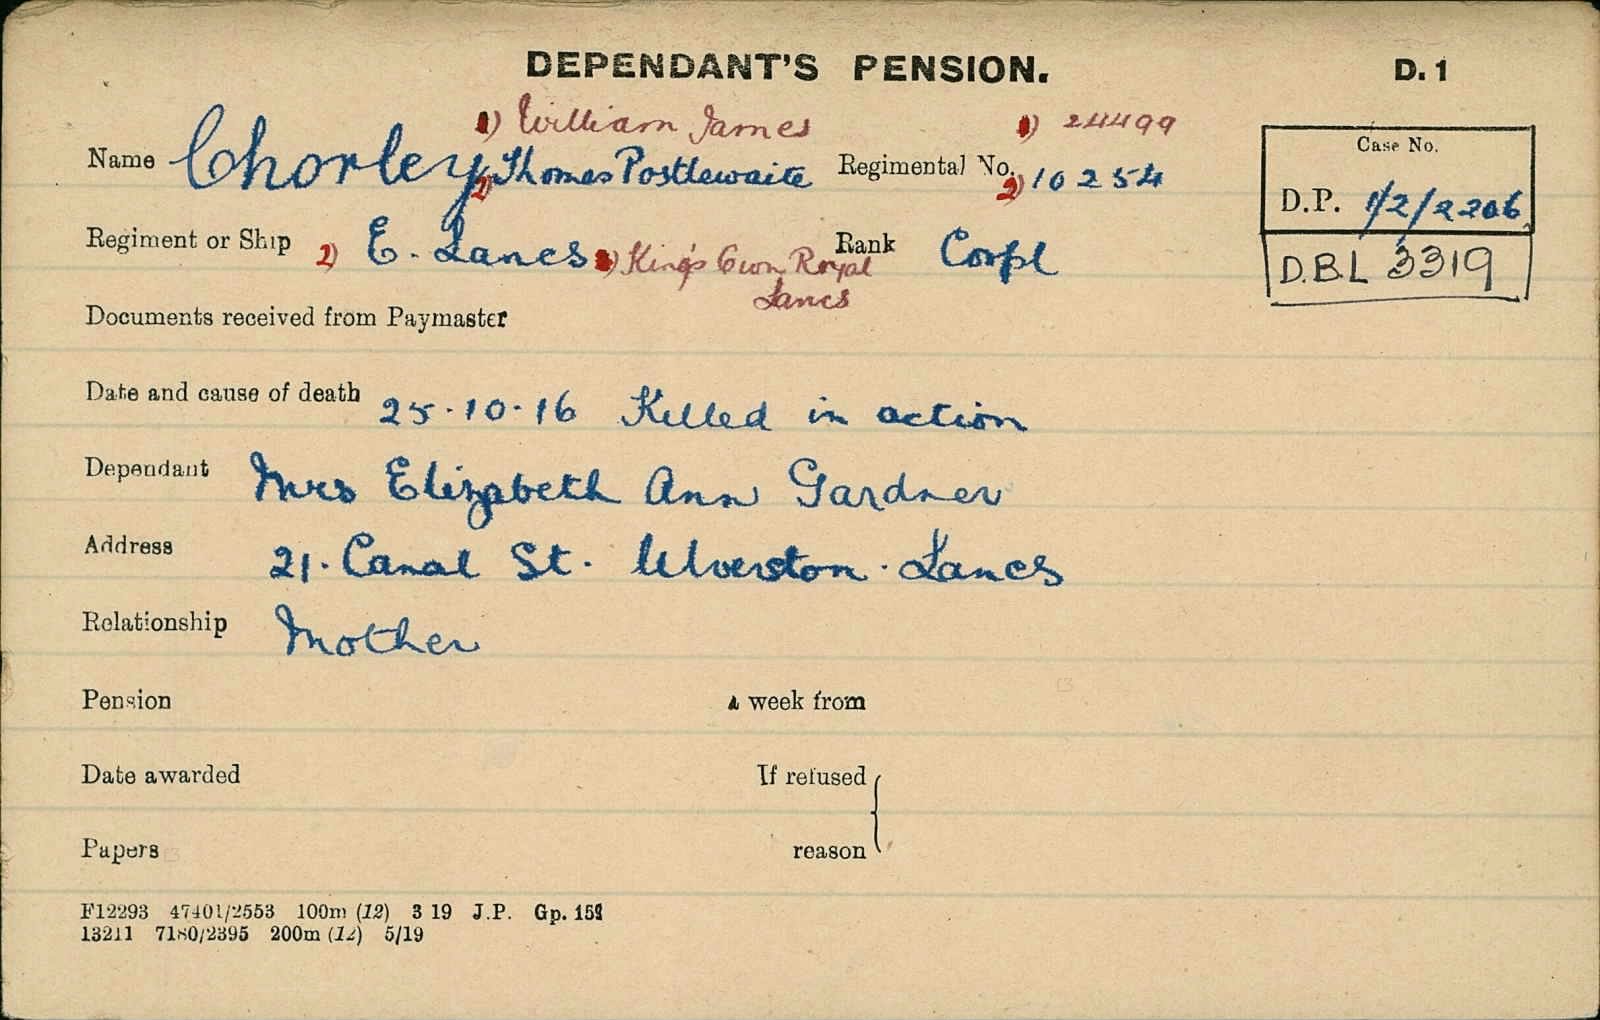 DEPENDANT'S PENSION. D. 1
1) William James 1) 24499
Name Chorley 2) Thomas Postlewaite Regimental No. 2) 10254
Case No.
D.P. 1/2/2206
Regiment or Ship 2) E. Lancs 1) King's Own Royal Lancs Rank Corpl
D.B.L 3319
Documents received from Paymaster
Date and cause of death 25.10.16 Killed in action
Dependant Mrs Elizabeth Ann Gardner
Address 21. Canal St. Ulverston. Lancs
Relationship Mother
Pension a week from
Date awarded If refused
Papers reason
F12293 47401/2553 100m (12) 3 19 J.P. Gp. 159
13211 7180/2395 200m (12) 5/19